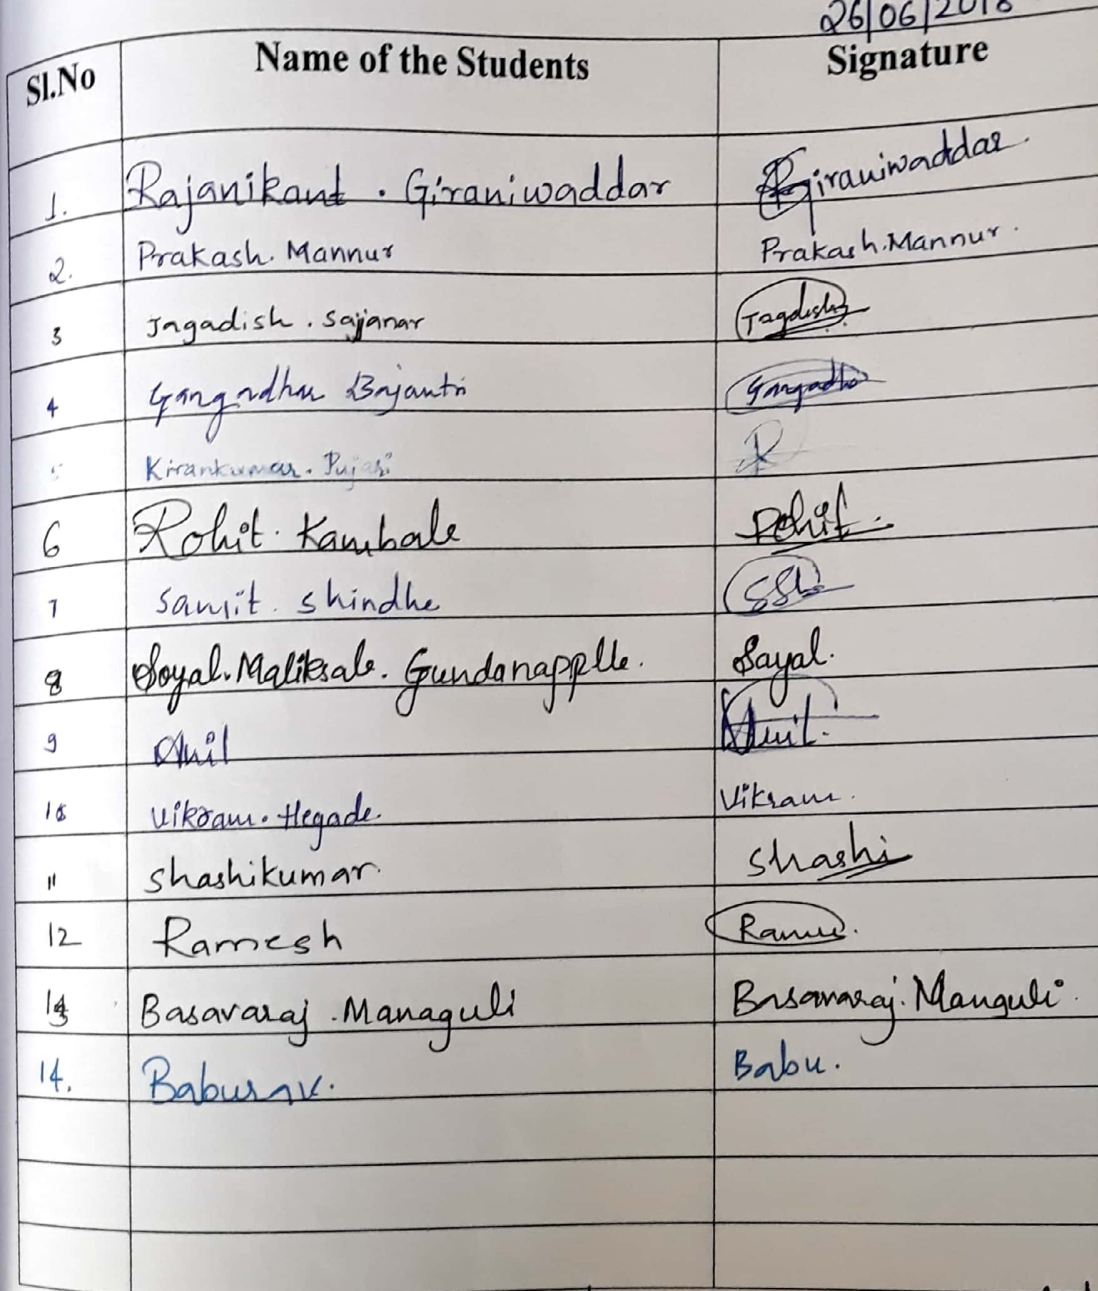 26/06/2018
Sl.No Name of the Students Signature
1. Rajanikant . Giraniwaddar Giraniwaddar.
2. Prakash. Mannur Prakash.Mannur.
3 Jagadish . Sajjanar Jagdish
4 Gangadhar Bajantri Gangadhar
5 Kirankumar. Pujari
6 Rohit. Kambale Rohit.
7 Shindhe SSh
8 Soyal. Maliksab. Sayal.
9 Anil Anil.
10 Vikram. Hegade. Vikram.
11 Shashikumar. Shashi
12 Ramesh Ramu.
13 Basavaraj . Managuli Basavaraj. Manguli.
14. Baburav. Babu.